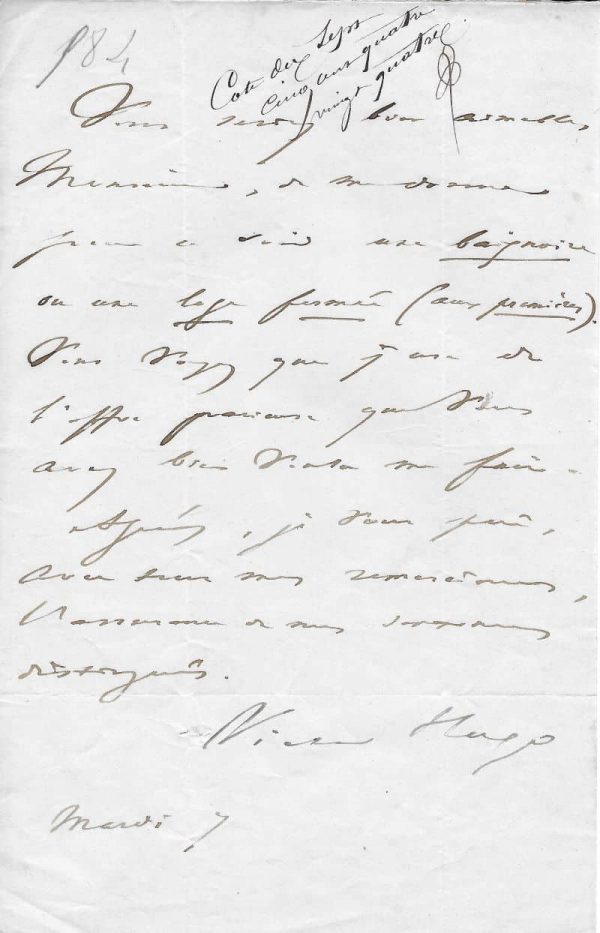 184
Cote dix Sept
cinq cent quatre
vingt quatre
Vous seriez bien aimable,
Monsieur, de me donner
pour ce soir une baignoire
ou une loge fermée (aux premières).
Vous voyez que j'use de
l'offre gracieuse que vous
avez bien voulu me faire.
Agréez, je vous prie,
avec tous mes remerciements,
l'assurance de mes sentiments
distingués.
Victor Hugo
Mardi 7